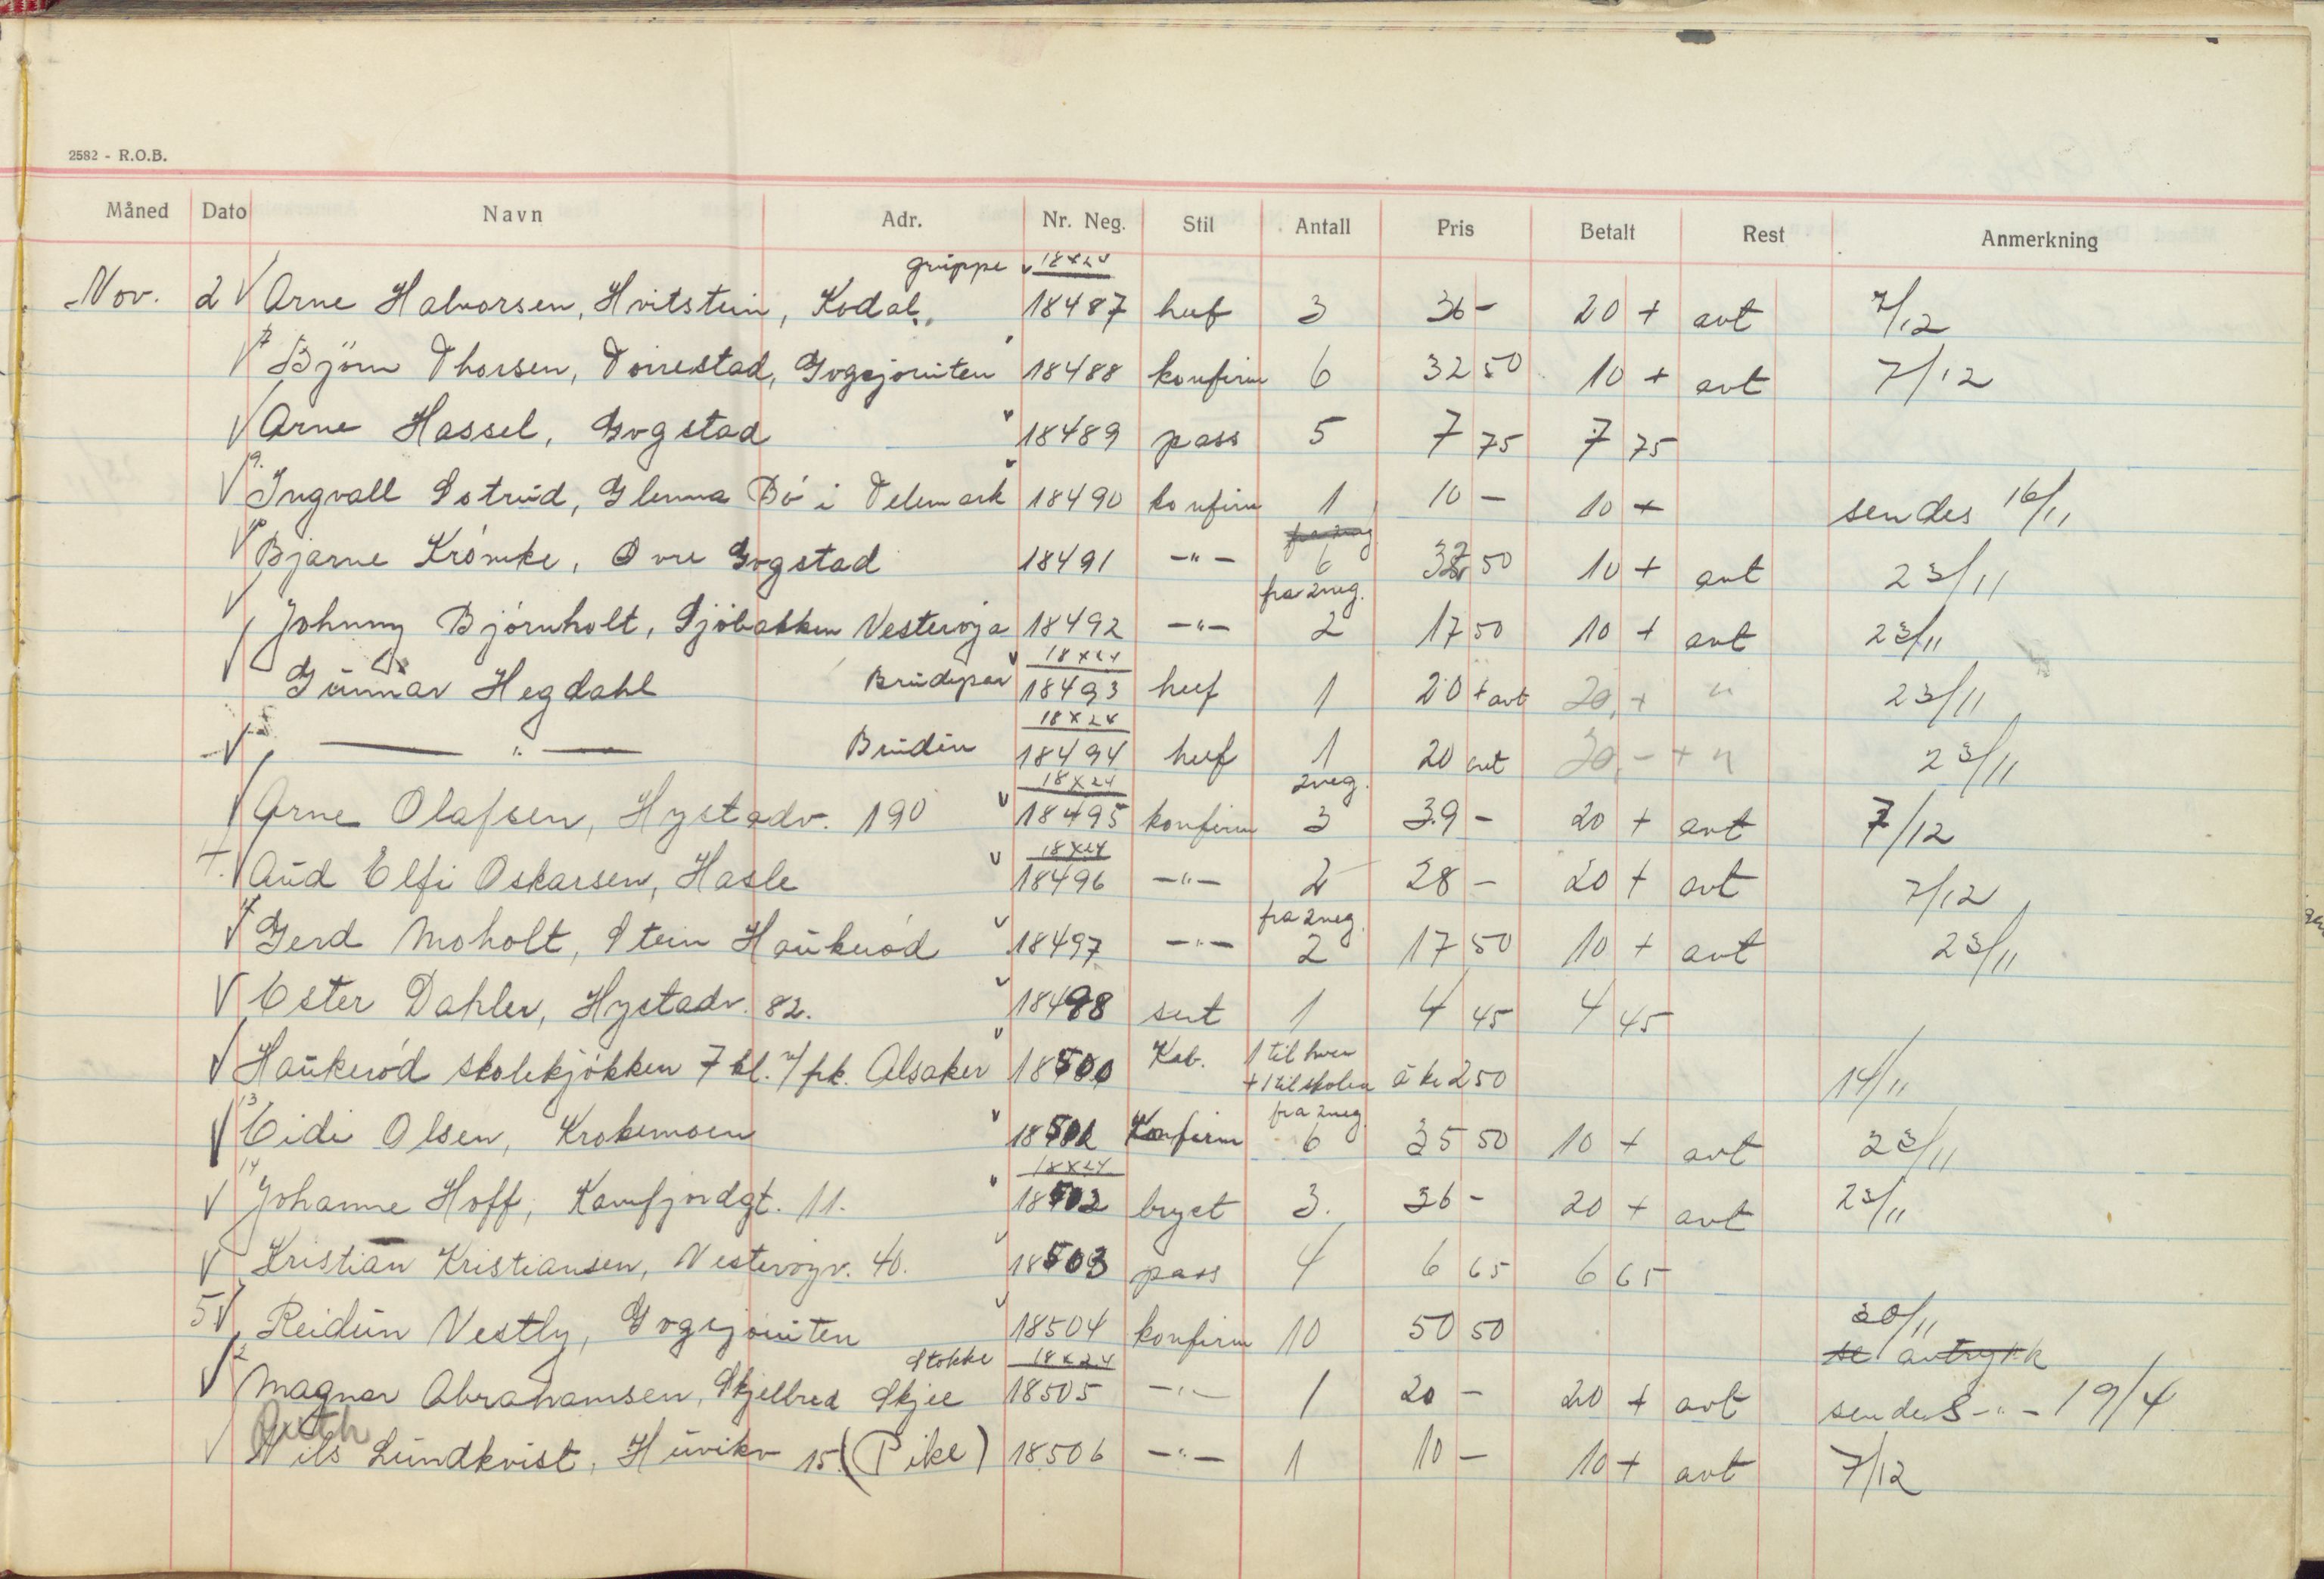 2582 - R.O.B.
Måned Dato Navn Adr. Nr. Neg. Stil Antall Pris Betalt Rest Anmerkning
gruppe 18x24
Nov. 2 V Arne Halvorsen, Hvitstein, Kodal. 18487 huf 3 36 - 20 + avt 7/12
V Björn Thorsen, Torrestad, Gogsjordet 18488 konfirm 6 32 50 10 + avt 7/12
V Arne Hassel, Gogstad 18489 pass 5 7 75 7 75
V 9. Ingvall Sstrud, Glenna Bö i Telemark 18490 konfirm 1 10 - 10 + sendes 16/11
V Bjarne Krömke, Ovre Gogstad 18491 -"- 6 32 50 10 + avt 23/11
fra 2 neg.
V Johnny Björnholt, Sjöbakken Vesteröya 18492 -"- 2 17 50 10 + avt 23/11
18x24
V Gunnar Hegdahl Brudepar 18493 huf 1 20 + avt 20, + " 23/11
18x24
V — " — Bruden 18494 huf 1 20 avt 20, - + " 23/11
18x24 2 neg.
V Arne Olafsen, Hystadv. 190 18495 konfirm 3 39 - 20 + avt 7/12
18x24
V Aud Elfi Oskarsen, Hasle 18496 -"- 2 28 - 20 + avt 7/12
fra 2 neg.
V Gerd Moholt, Stein Haukeröd 18497 -"- 2 17 50 10 + avt 23/11
V Ester Dahler, Hystadv. 82. 18498 sert 1 4 45 4 45
V Haukeröd skolekjökken 7 kl. v/ frk. Alsaker 18500 Kab. 1 til hver
+ 1 til skolen á kr 2 50 14/11
13 fra 2 neg.
V Eidi Olsen, Krokemoen 18501 Konfirm 6 35 50 10 + avt 23/11
14 18x24
V Johanne Hoff, Kamfjordgt. 11. 18502 bryst 3. 36 - 20 + avt 23/11
V Kristian Kristiansen, Vesteröyv. 40. 18503 pass 4 6 65 6 65
5 V Reidun Vestly, Gogsjordet 18504 konfirm 10 50 50 30/11
Stokke 18x24 se avtrykk
V Magnar Abrahamsen, Skjelbred Skjee 18505 -"- 1 20 - 20 + avt sendes -"- 19/4
Ruth
V Nils Lundkvist, Huvikv 15. (Pike) 18506 -"- 1 10 - 10 + avt 7/12